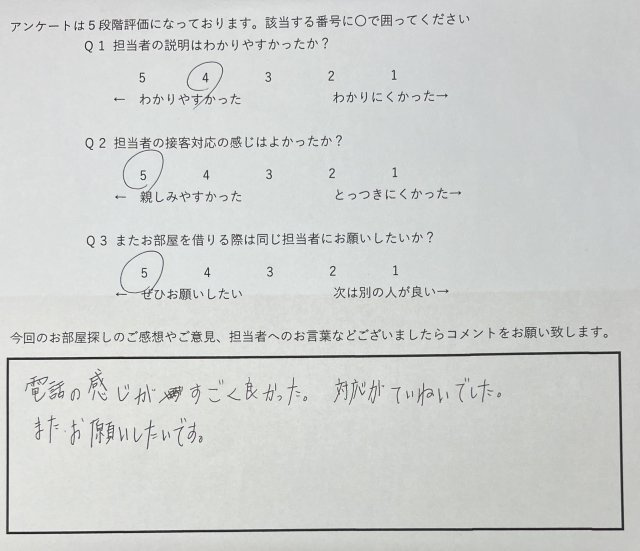 アンケートは５段階評価になっております。該当する番号に〇で囲ってください
Ｑ１ 担当者の説明はわかりやすかったか？
5 4 3 2 1
← わかりやすかった わかりにくかった→
Ｑ２ 担当者の接客対応の感じはよかったか？
5 4 3 2 1
← 親しみやすかった とっつきにくかった→
Ｑ３ またお部屋を借りる際は同じ担当者にお願いしたいか？
5 4 3 2 1
← ぜひお願いしたい 次は別の人が良い→
今回のお部屋探しのご感想やご意見、担当者へのお言葉などございましたらコメントをお願い致します。
電話の感じがすごく良かった。 対応がていねいでした。
また、お願いしたいです。